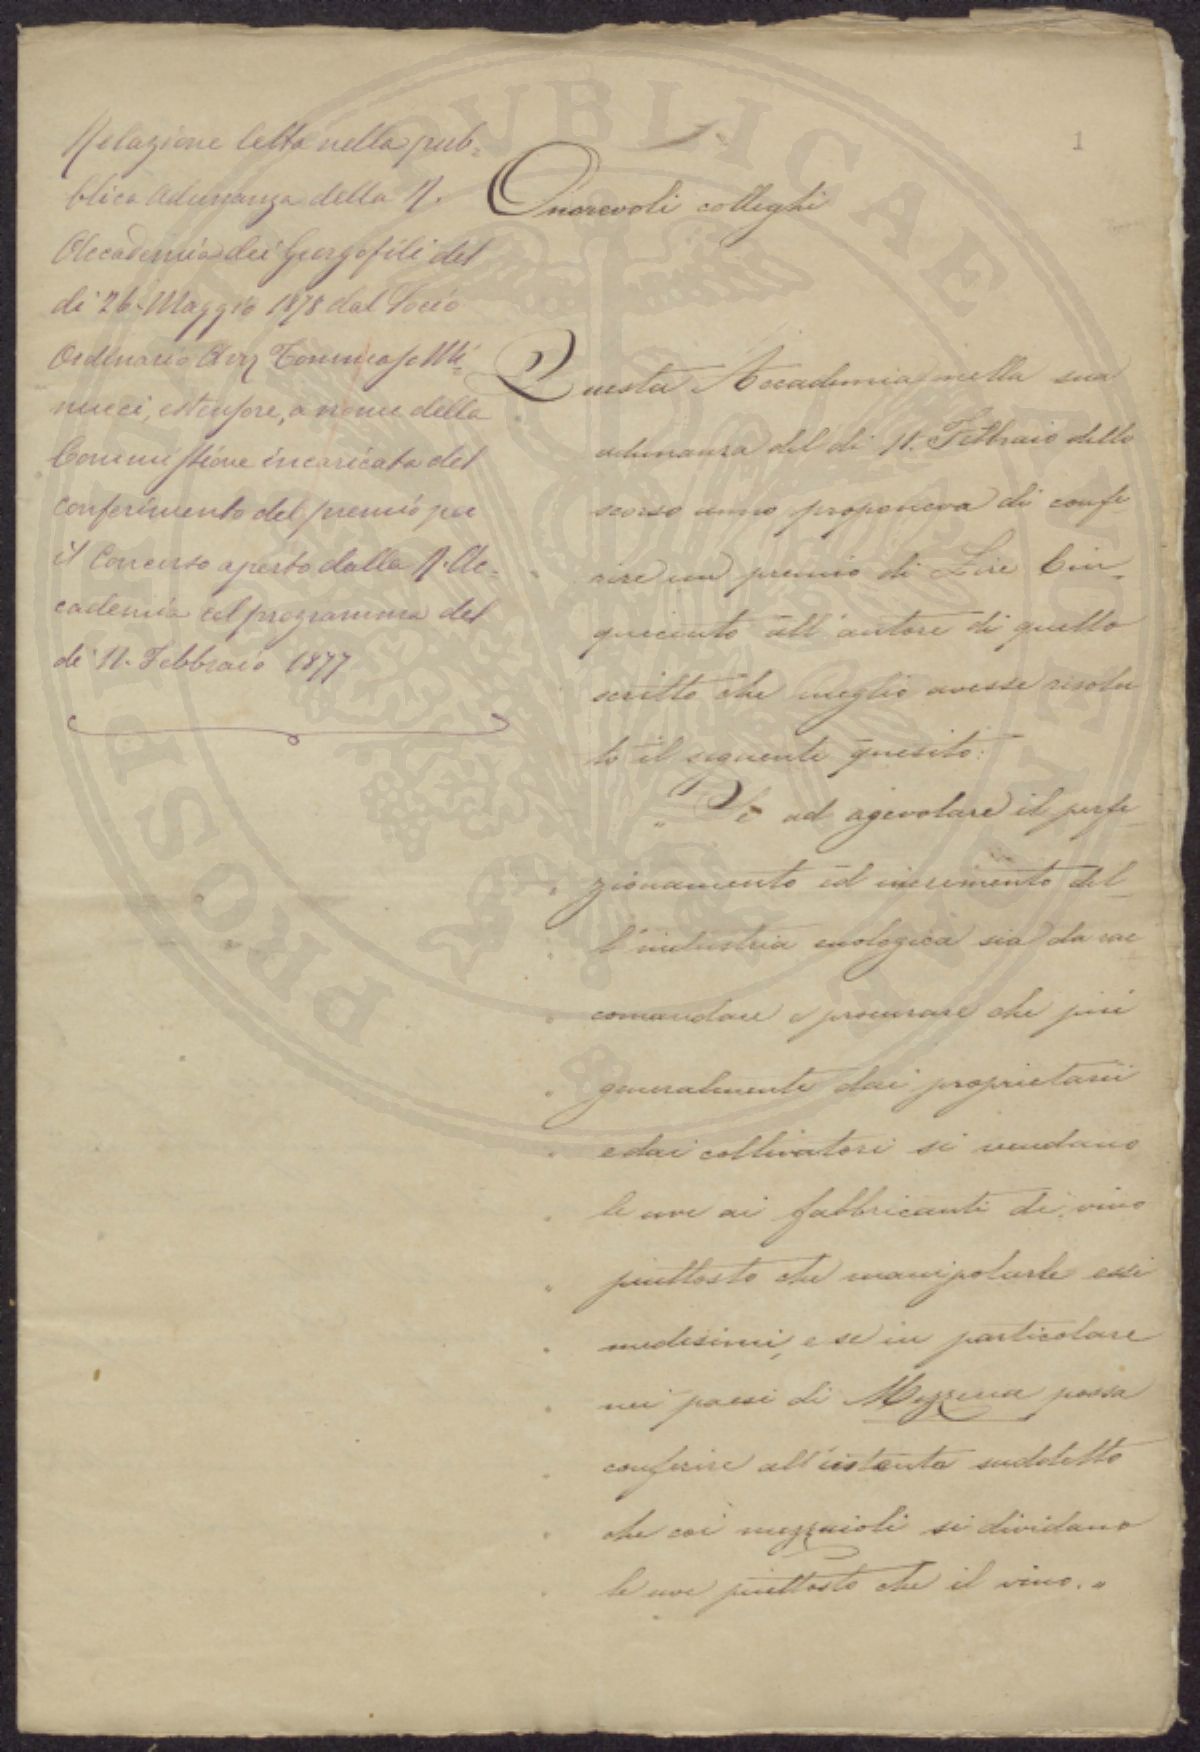 1
Relazione letta nella pub-
blica Adunanza della R.
Accademia dei Georgofili del
dì 26. Maggio 1878 dal Socio
Ordinario Avv. Tommaso Mi-
nucci, estensore, a nome della
Commissione incaricata del
conferimento del premio per
il Concorso aperto dalla R. Ac-
cademia col programma del
dì 11. Febbraio 1877
Onorevoli colleghi
Questa Accademia nella sua
adunanza del dì 11. Febbraio dello
scorso anno proponeva di confe
rire un premio di Lire Cin-
quecento all'autore di quello
scritto che meglio avesse risolu
to il seguente quesito:
"Se ad agevolare il perfe
" zionamento ed incremento del-
" l'industria enologica sia da rac
" comandare e procurare che più
" generalmente dai proprietarii
" e dai coltivatori si vendano
" le uve ai fabbricanti di vino
" piuttosto che manipolarle essi
" medesimi, e se in particolare
" nei paesi di Mezzeria possa
" conferire all'intento suddetto
" che coi mezzaioli si dividano
" le uve piuttosto che il vino."
PROSPERITATI PUBLICAE AUGENDAE